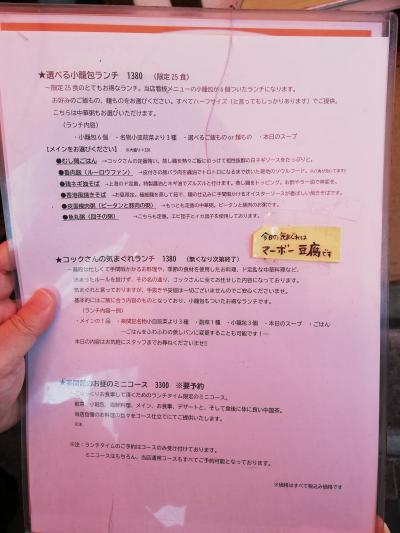 ★選べる小籠包ランチ 1380 (限定25食)
～限定25食のとてもお得なランチ。当店看板メニューの小籠包が6個ついたランチになります。
お好みのご飯もの、麺ものをお選びください。すべてハーフサイズ(と言ってもしっかりあります)でご提供。
こちらは中華粥もお選びいただけます。
(ランチ内容)
・小籠包6個 ・名物小皿前菜より3種 ・選べるご飯もの or 麺もの ・本日のスープ
【メインをお選びください】
●むし鶏ごはん
●魯肉飯(ルーロウファン)
●鶏ネギ麺そば
●香港風焼きそば
●皮蛋瘦肉粥(ピータンと豚肉の粥) →もっとも定番の中華粥。ピータンと豚肉のお粥です。
●魚丸粥(団子の粥) →こちらも定番。エビ団子とイカ団子を使用しております。
今日の気まぐれは
マーボー豆腐です
★コックさんの気まぐれランチ 1380 (無くなり次第終了)
決まったルールを設けず、その名の通り、コックさんに全てお任せした内容になっております。
気まぐれと言っておりますが、手抜きや妥協は一切ございませんのでご安心くださいませ。
基本的にはご飯に合う内容のものとなっており、小籠包もついたお得なランチです。
(ランチ内容一例)
・メインの1品 ・茶閒館名物小皿前菜より3種 ・副菜1種 ・小籠包3個 ・本日のスープ ・ごはん
～ごはんをふわふわの蒸しパンに変更することも可能です！～
本日の内容はお気軽にスタッフまでお尋ねくださいませ!!
お昼のミニコース 3300 ※要予約
～ゆっくりお食事して頂くためのランチタイム限定のミニコース。
前菜、小籠包、海鮮料理、メイン、お食事、デザートと、そして食後に体に良い中国茶。
当店自慢のお料理の数々をコース仕立てにてご提供いたします。
※注：ランチタイムのご予約はコースのみ受け付けております。
ミニコースはもちろん、当店通常コースもすべてご予約可能となっております。
※価格はすべて税込み価格です